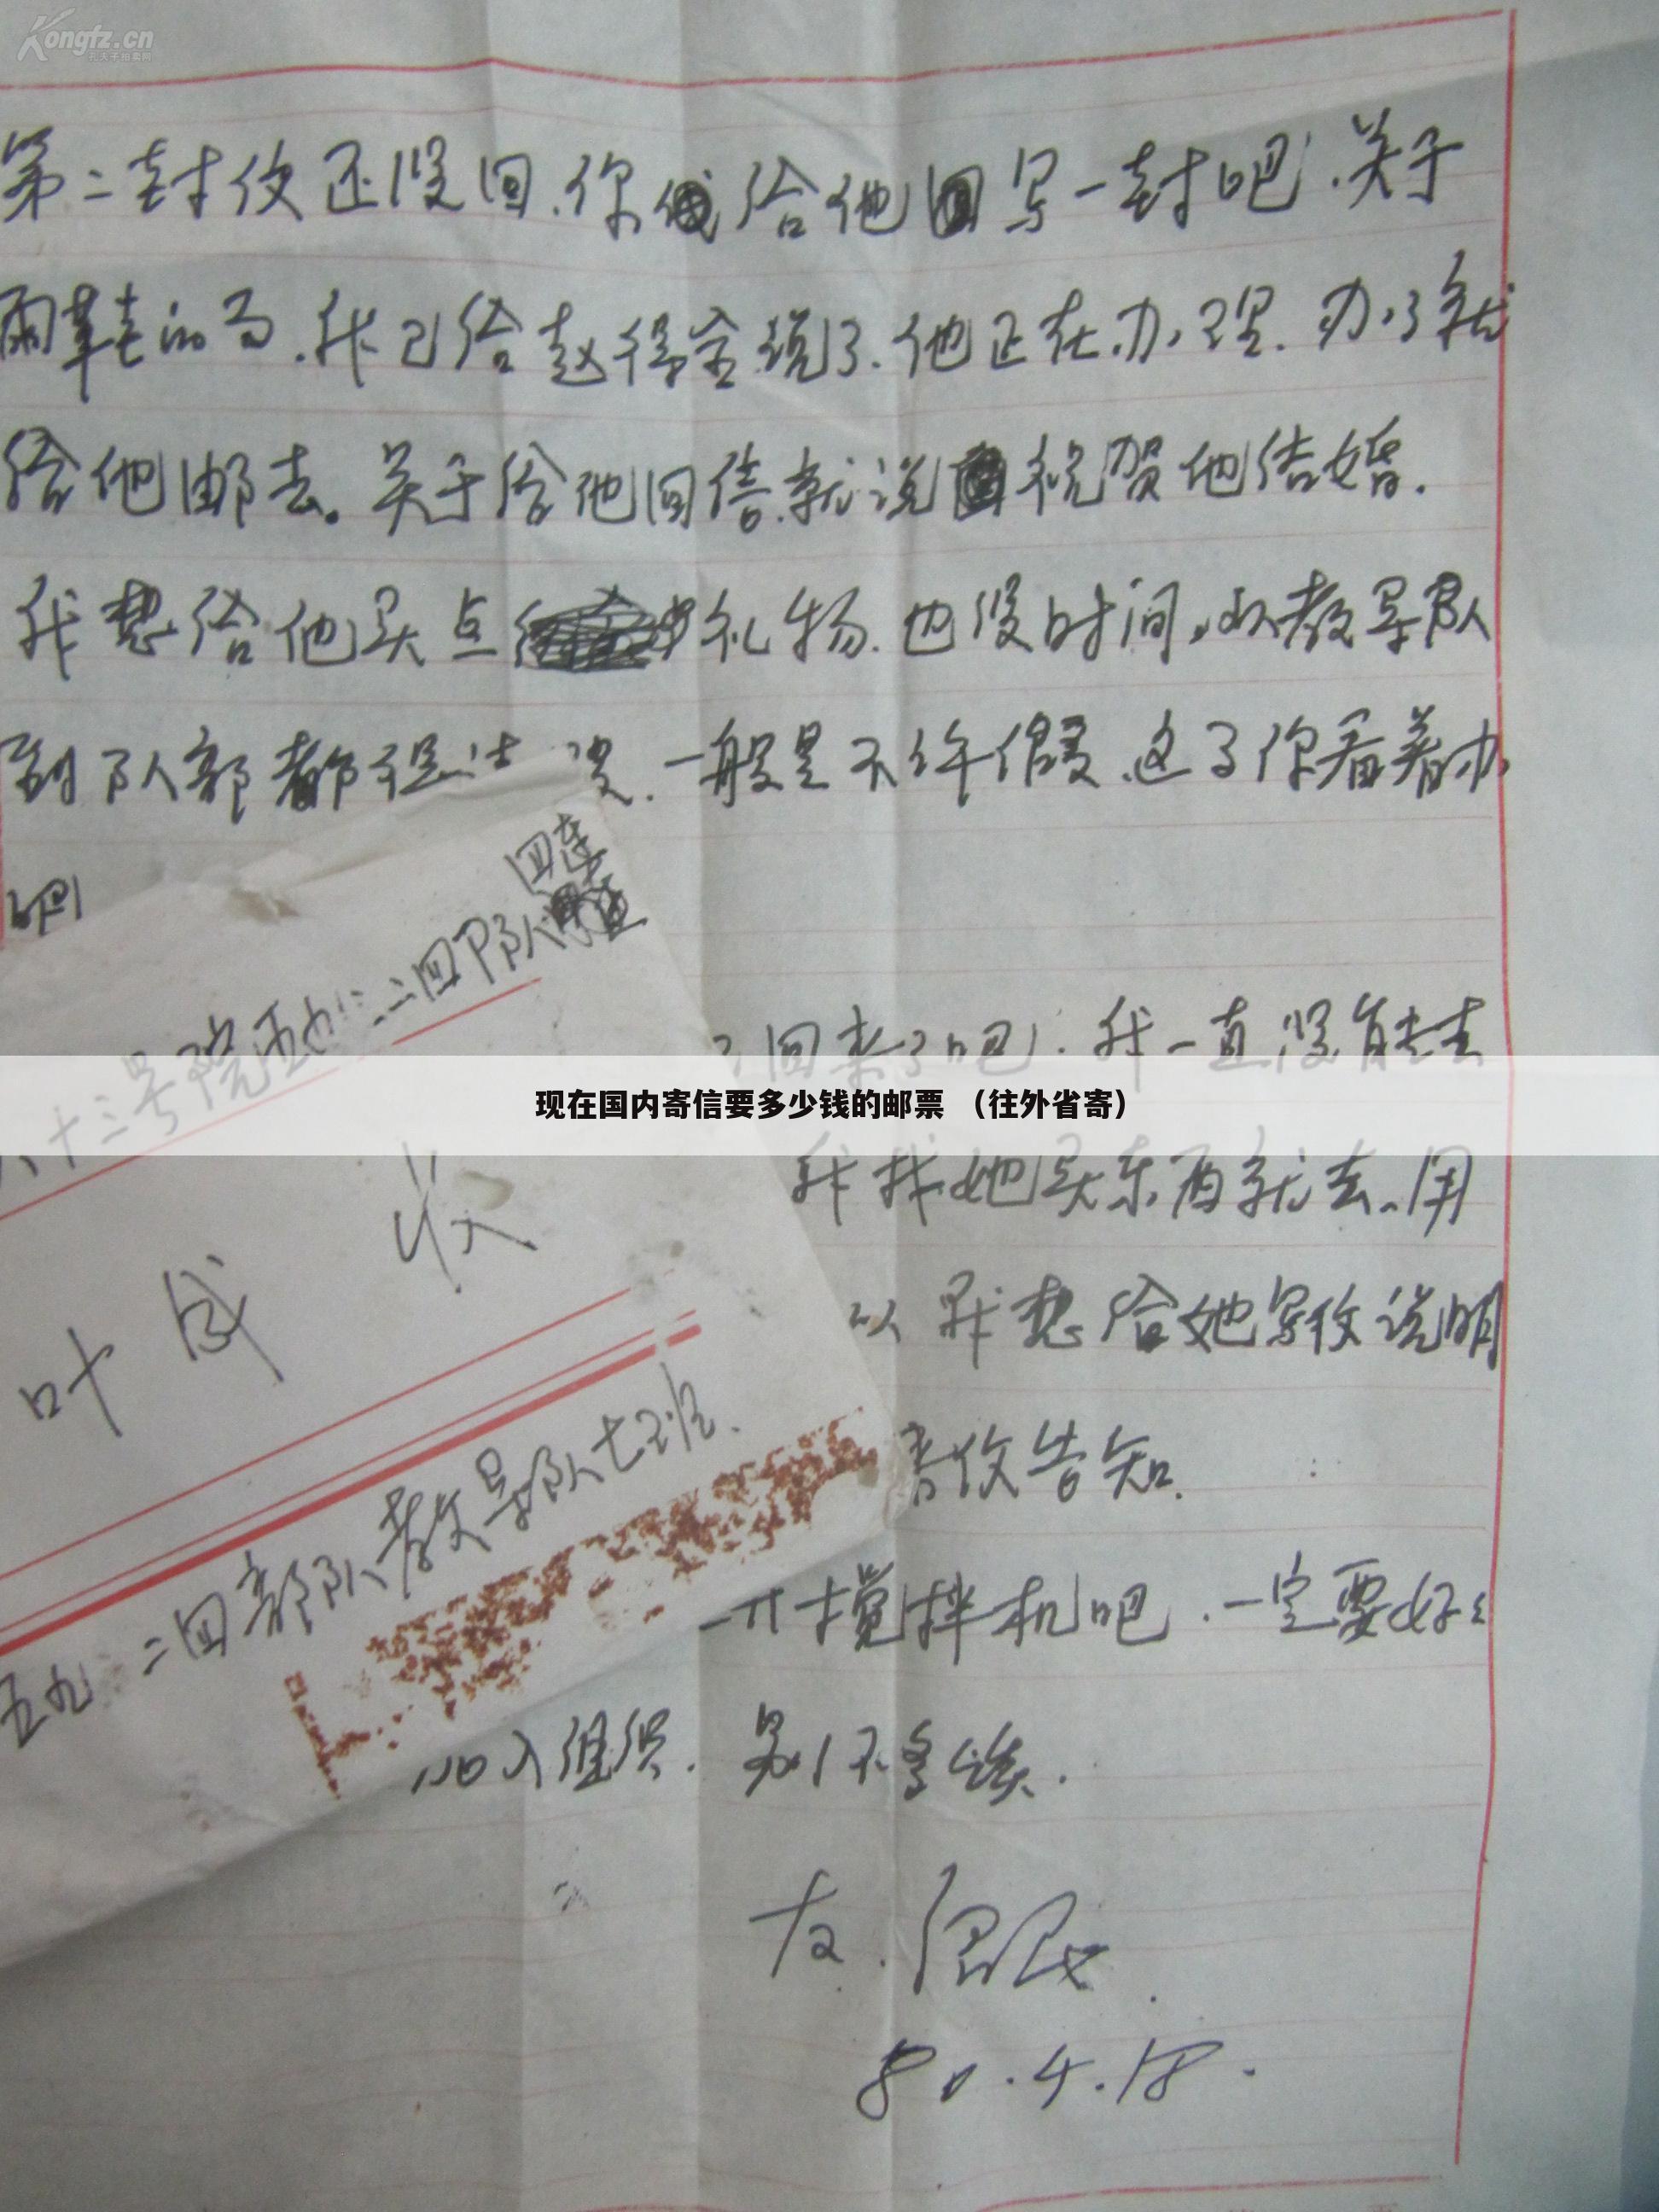 Kongfz.cn
第二封伩还没回.你给他回写一封吧.关于
雨鞋的事.我已给赵得金说了.他正在办理.办了就
给他邮去。关于给他回信.就说祝贺他结婚.
我想给他买点礼物.也没时间,从教导队
到队部都得请 一般是不许假.这事你看着办
吧
四连
十三号院 二四部队
回来了吧.我一直没有去
现在国内寄信要多少钱的邮票 （往外省寄）
我找她买东西就去.用
以 我想给她写伩说明
叶成 收
伩告知.
五九 二四部队教导队七班.
开搅拌机吧.一定要好
加入组织.
友.
80.4.18.